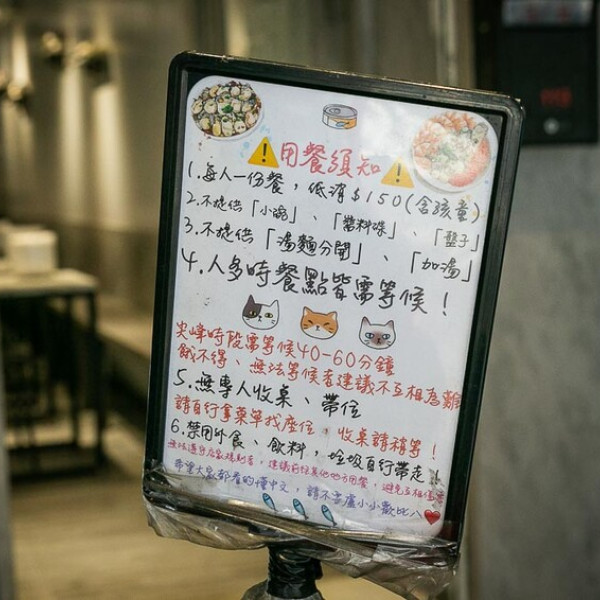 用餐須知
1.每人一份餐，低消$150(含孩童)
2.不提供「小碗」、「醬料碟」、「盤子」
3.不提供「湯麵分開」、「加湯」
4.人多時餐點皆需等候！
尖峰時段需等候40-60分鐘
餓不得、無法等候者建議不互相為難
5.無專人收桌、帶位
請自行拿菜單找座位，收桌請稍等！
6.禁用外食、飲料，垃圾自行帶走！
無法遵守店家規則者，建議前往其他地方用餐，避免互相
希望大家都看的懂中文，請不要盧小小歡比八